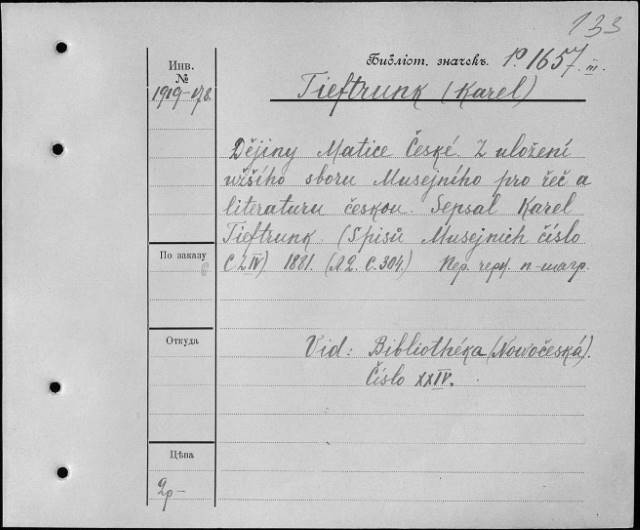 133
Инв.
№
1919-178.
Библіот. значекъ. P. 1657. III.
Tieftrunk (Karel)
Dějiny Matice České. Z uložení
užšího sboru Musejního pro řeč a
literaturu českou. Sepsal Karel
Tieftrunk. (Spisů Musejních číslo
CLIV) 1881. (A2. C. 304.) Пер.
По заказу
Откуда
Vid: Bibliothéka (Nowočeská).
Číslo XXIV.
Цѣна
2р-